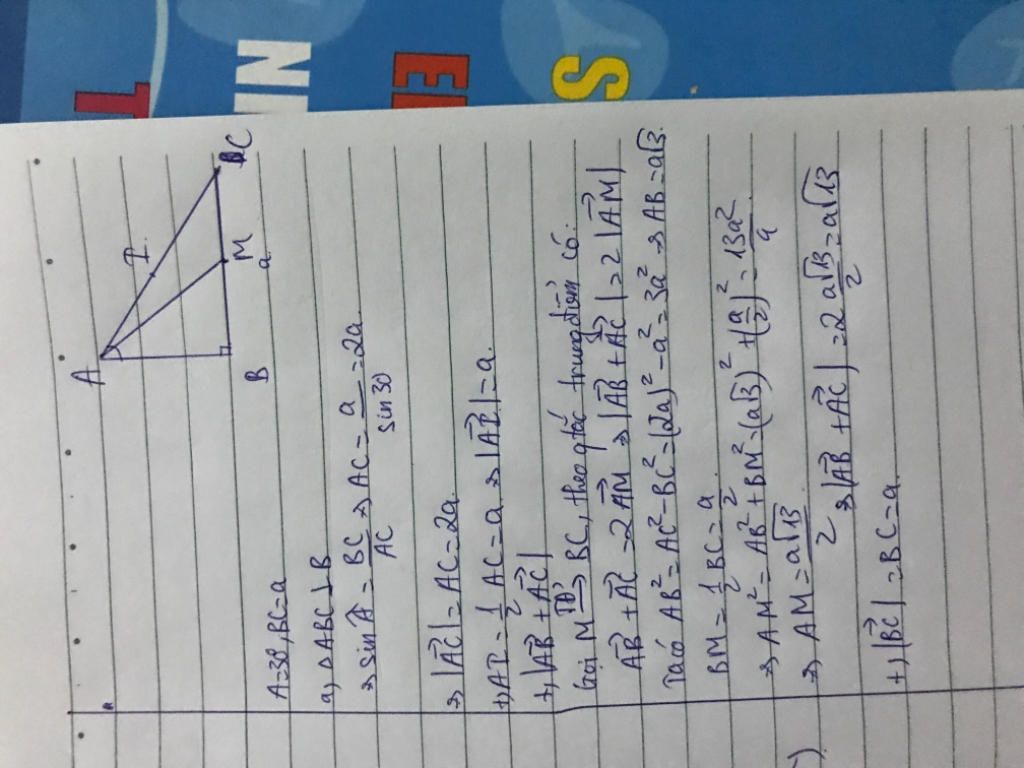 T
NI
EI
S
A
I
B
M
C
a
A=30, BC=a
a, △ABC ⊥ B
→ sin A = BC/AC → AC = a/sin 30 = 2a
→ |AC→| = AC = 2a
+, AI = 1/2 AC = a → |AI→| = a.
+, |AB→ + AC→|
Gọi M TĐ→ BC, theo qtắc trung điểm có:
AB→ + AC→ = 2 AM→ → |AB→ + AC→| = 2 |AM→|
Ta có AB² = AC² - BC² = (2a)² - a² = 3a² → AB = a√3.
BM = 1/2 BC = a/2
→ AM² = AB² + BM² = (a√3)² + (a/2)² = 13a²/4
→ AM = a√13/2
→ |AB→ + AC→| = 2 a√13/2 = a√13
+, |BC→| = BC = a.